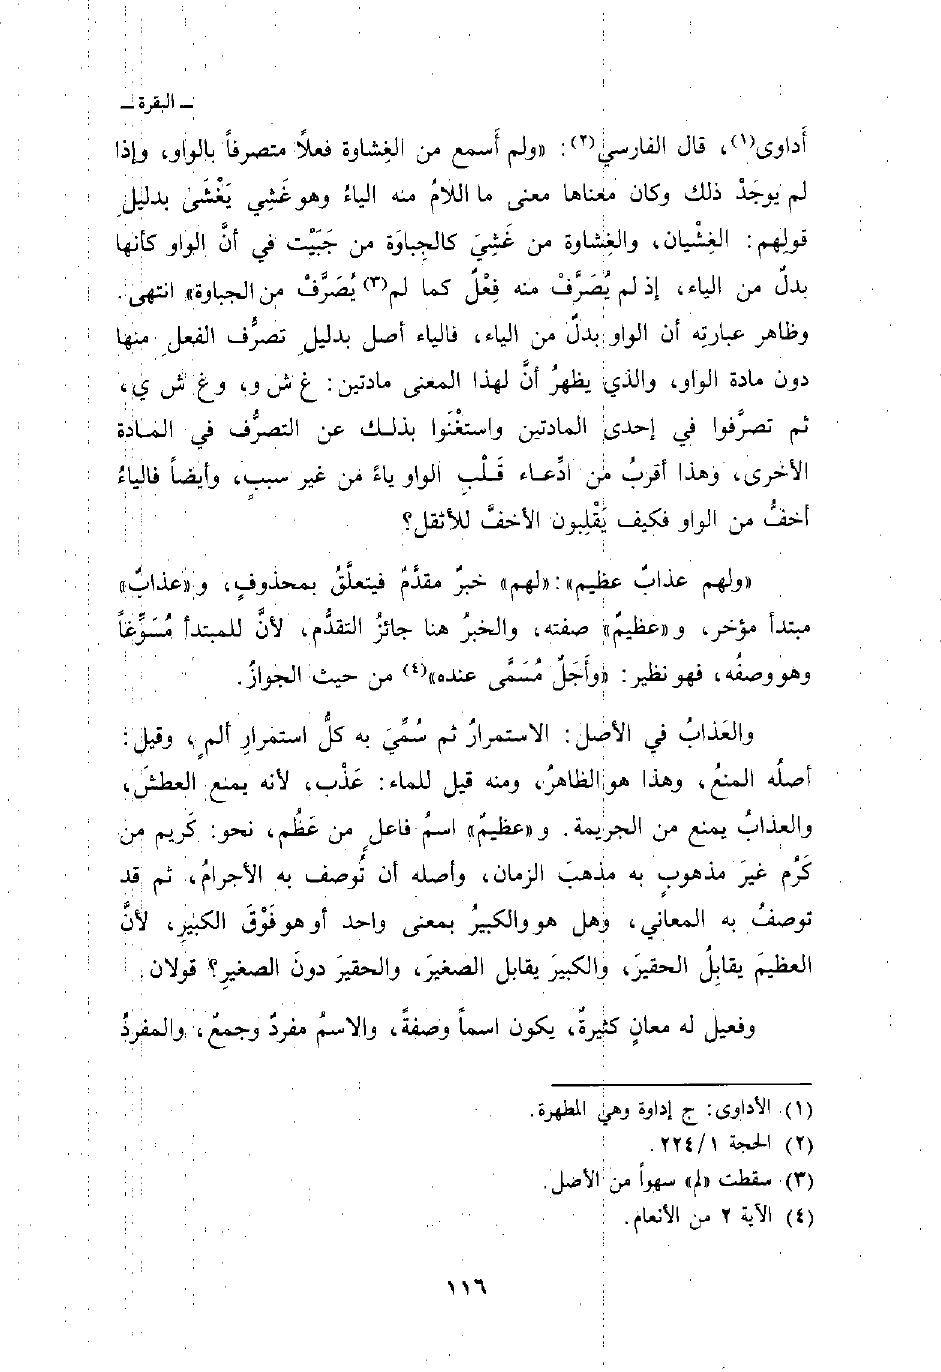 ـ البقرة ـ
أَداوى(١)، قال الفارسي(٢): «ولم أَسمع من الغِشاوة فعلًا متصرفاً بالواو، وإذا
لم يوجَدْ ذلك وكان معناها معنى ما اللامُ منه الياءُ وهو غَشِي يَغْشَى بدليلِ
قولِهم: الغِشْيان، والغِشاوة من غَشِيَ كالجِباوَة من جَبَيْت في أنَّ الواو كأنها
بدلٌ من الياء، إذ لم يُصَرَّفْ منه فِعْلٌ كما لم(٣) يُصَرَّفْ من الجباوة» انتهى.
وظاهر عبارتِه أن الواو بدلٌ من الياء، فالياء أصل بدليلِ تصرُّف الفعلِ منها
دون مادة الواو، والذي يظهرُ أنَّ لهذا المعنى مادتين: غ ش و، و غ ش ي،
ثم تصرَّفوا في إحدى المادتين واستغْنَوا بذلك عن التصرُّف في المادة
الأخرى، وهذا أقربُ من ادِّعاء قَلْبِ الواو ياءً من غير سببٍ، وأيضاً فالياءُ
أخفُّ من الواو فكيف يَقْلِبون الأخفَّ للأثقل؟
«ولهم عذابٌ عظيم»: «لهم» خبرٌ مقدَّمٌ فيتعلَّقُ بمحذوفٍ، و «عذابٌ»
مبتدأ مؤخر، و «عظيمٌ» صفته، والخبرُ هنا جائزُ التقدُّم، لأنَّ للمبتدأ مُسَوِّغاً
وهو وصفُه، فهو نظير: «وأَجَلٌ مُسَمًّى عنده»(٤) من حيث الجوازُ.
والعَذابُ في الأصل: الاستمرارُ ثم سُمِّيَ به كلُّ استمرارِ ألمٍ، وقيل:
أصلُه المنعُ، وهذا هو الظاهرُ، ومنه قيل للماء: عَذْب، لأنه يمنع العطشَ،
والعذابُ يمنع من الجريمة. و «عظيمٌ» اسمُ فاعلٍ من عَظُم، نحو: كَريم من
كَرُم غيرَ مذهوبٍ به مذهبَ الزمان، وأصله أن تُوصف به الأجرامُ، ثم قد
توصفُ به المعاني، وهل هو والكبيرُ بمعنى واحد أو هو فَوْقَ الكبيرِ، لأنَّ
العظيمَ يقابِلُ الحقيرَ، والكبيرَ يقابل الصغيرَ، والحقيرَ دونَ الصغيرِ؟ قولان.
وفعيل له معانٍ كثيرةٌ، يكون اسماً وصفةً، والاسمُ مفردٌ وجمعٌ، والمفردُ
(١) الأداوى: ج إداوة وهي المطهرة.
(٢) الحجة ١/ ٢٢٤.
(٣) سقطت «لم» سهواً من الأصل.
(٤) الآية ٢ من الأنعام.
١١٦